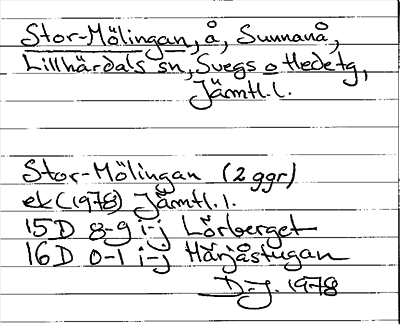 Stor-Mölingan, å, Sunnanå,
Lillhärdals sn, Svegs o Hede tg,
Jämtl. l.
Stor-Mölingan (2 ggr)
ek (1978) Jämtl. l.
15D 8-9 i-j Lörberget
16D 0-1 i-j Härjåstugan
D-j. 1978